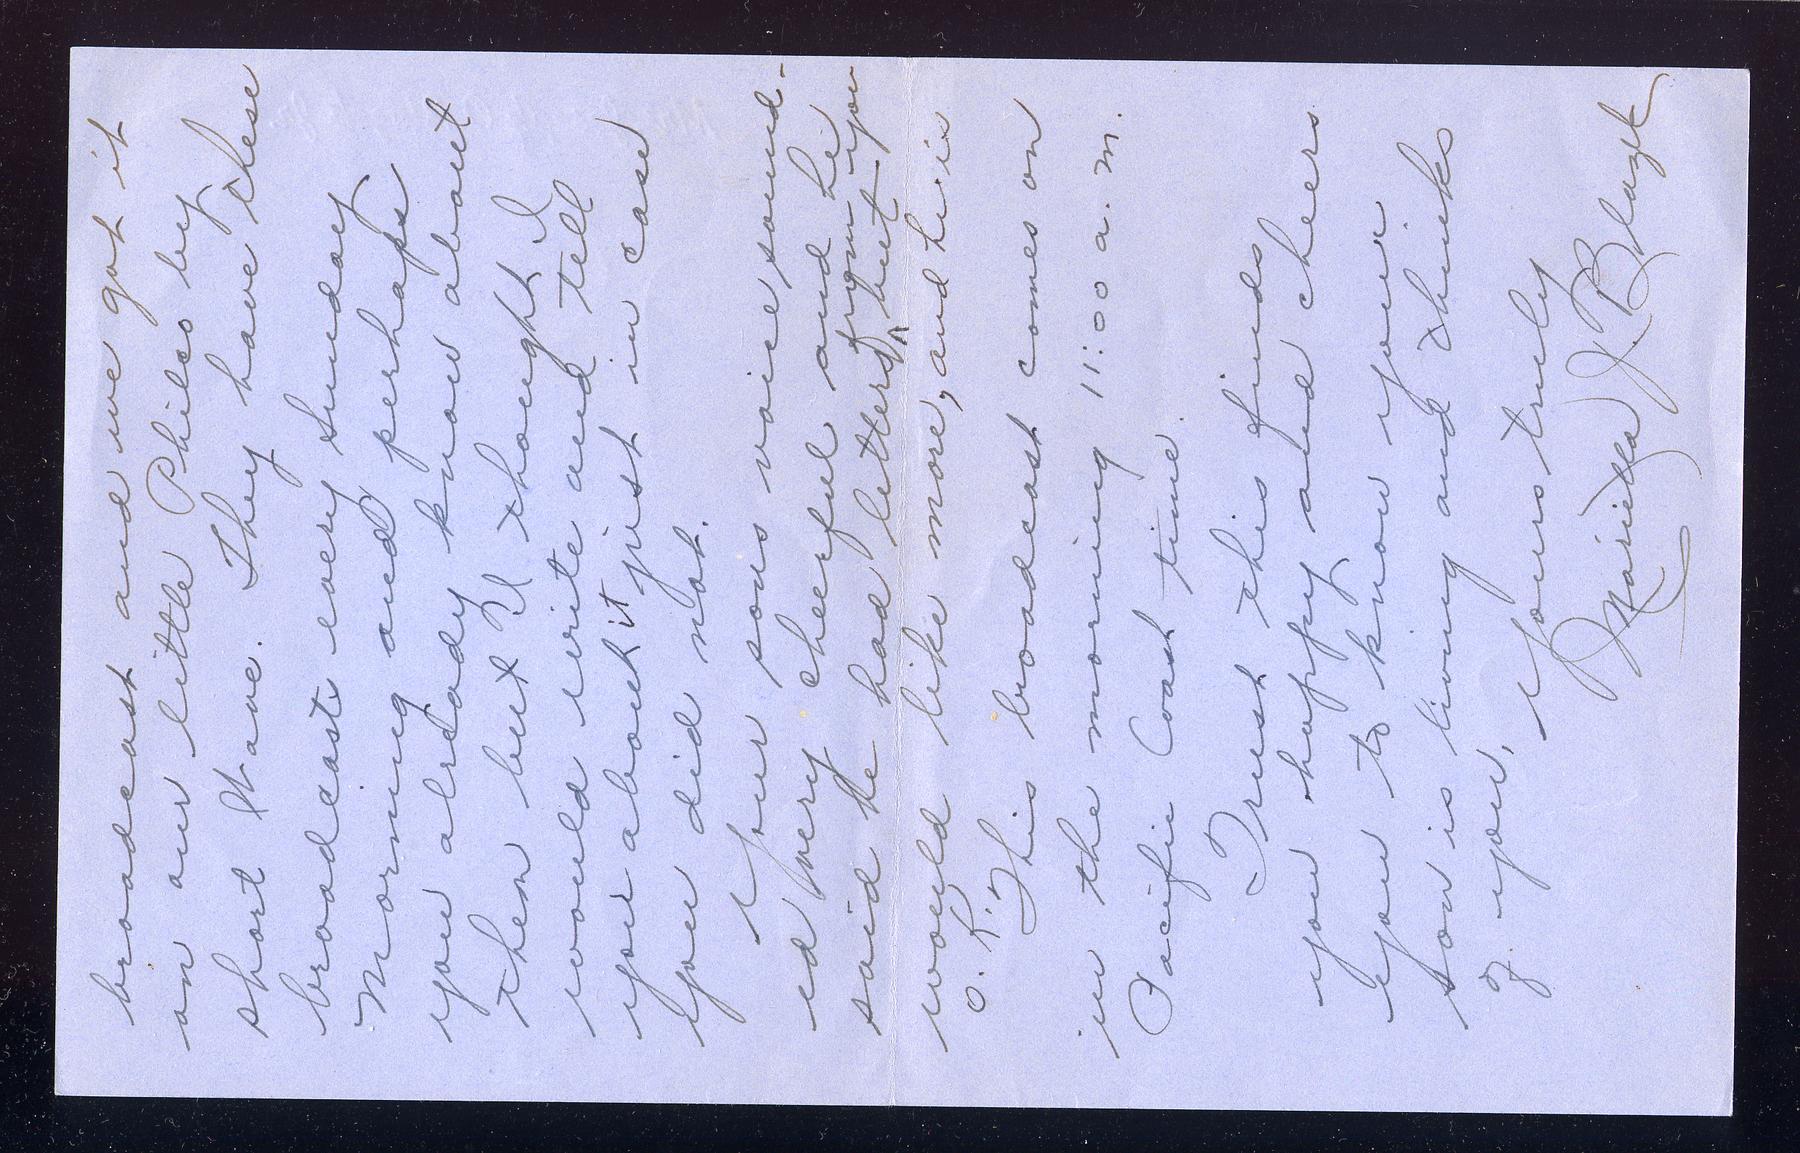 broadcast and we got it
on our little Philco by
short Wave. They have these
broadcasts every Sunday
Morning and perhaps
you already know about
them but I thought I
would write and tell
you about it just in case
you did not.
Your sons voice sound-
ed very cheerful and he
said he had letters from you but
would like more, and he is
O.K. This broadcast comes on
in the morning 11:00 a.m.
Pacific Coast time.
Trust this finds
you happy and cheers
you to know your
son is living and thinks
of you,
Yours truly
Mariella J. Blazek